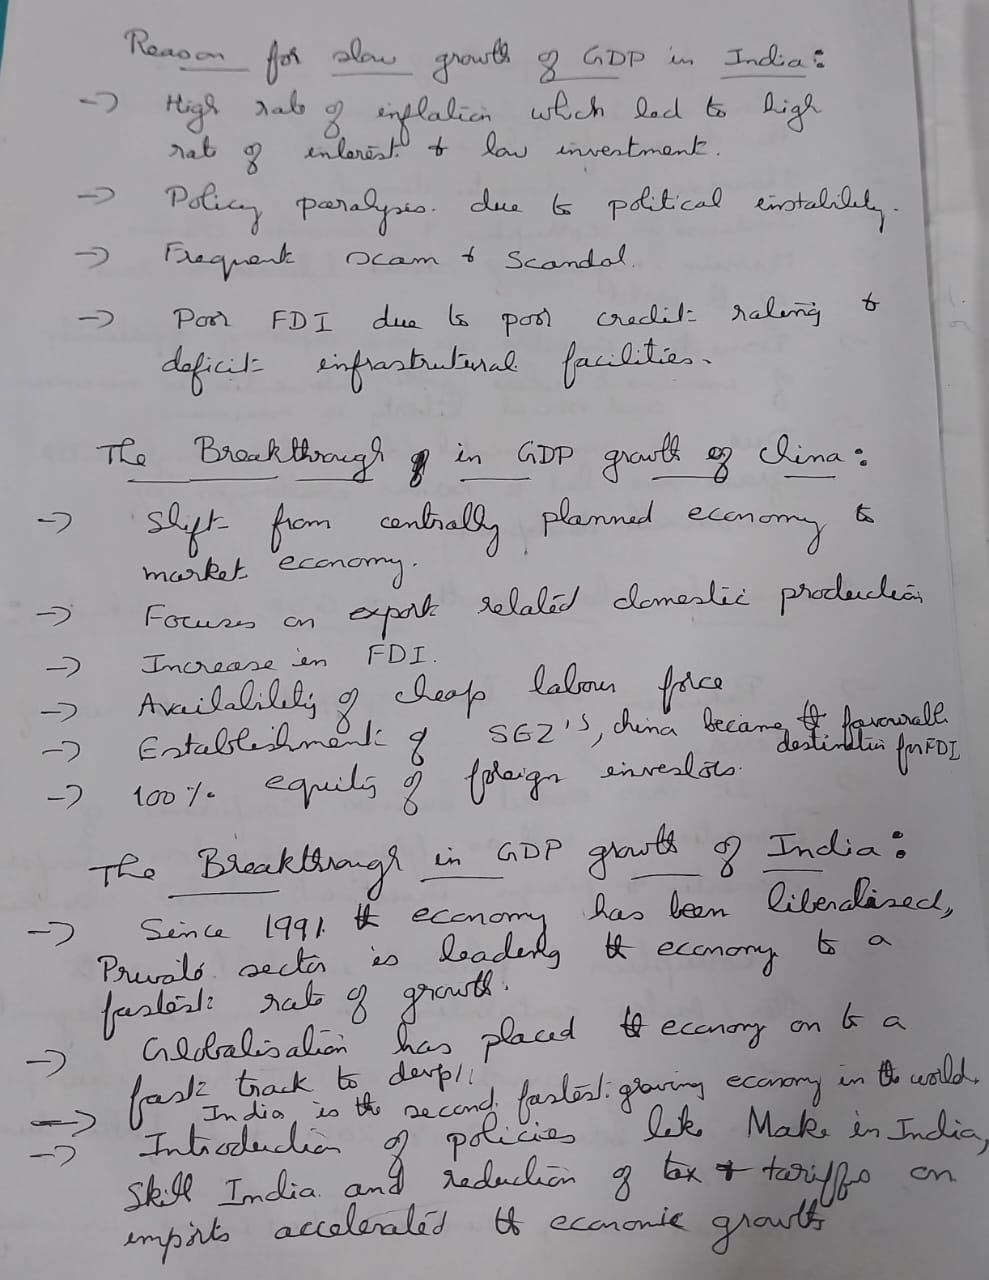 Reason for slow growth of GDP in India:
→ High rate of inflation which led to high
rate of interest & low investment.
→ Policy paralysis. due to political instability.
→ Frequent scam & scandal.
→ Poor FDI due to poor credit rating &
deficit infrastrutural facilities.
The Breakthrough in GDP growth of China:
→ Shift from centrally planned economy to
market economy.
→ Focuses on export related domestic production
→ Increase in FDI.
→ Availability of cheap labour force
→ Establishment of SEZ's, china became the favourable
destination for FDI
→ 100% equity of foreign investors.
The Breakthrough in GDP growth of India:
→ Since 1991. the economy has been liberalised,
Private sector is leading the economy to a
fastest rate of growth.
→ Globalisation has placed the economy on to a
fast track to devp//.
→ India is the second fastest growing economy in the world.
→ Introduction of policies like Make in India,
Skill India and reduction of tax & tariffs on
imports accelerated the economic growth